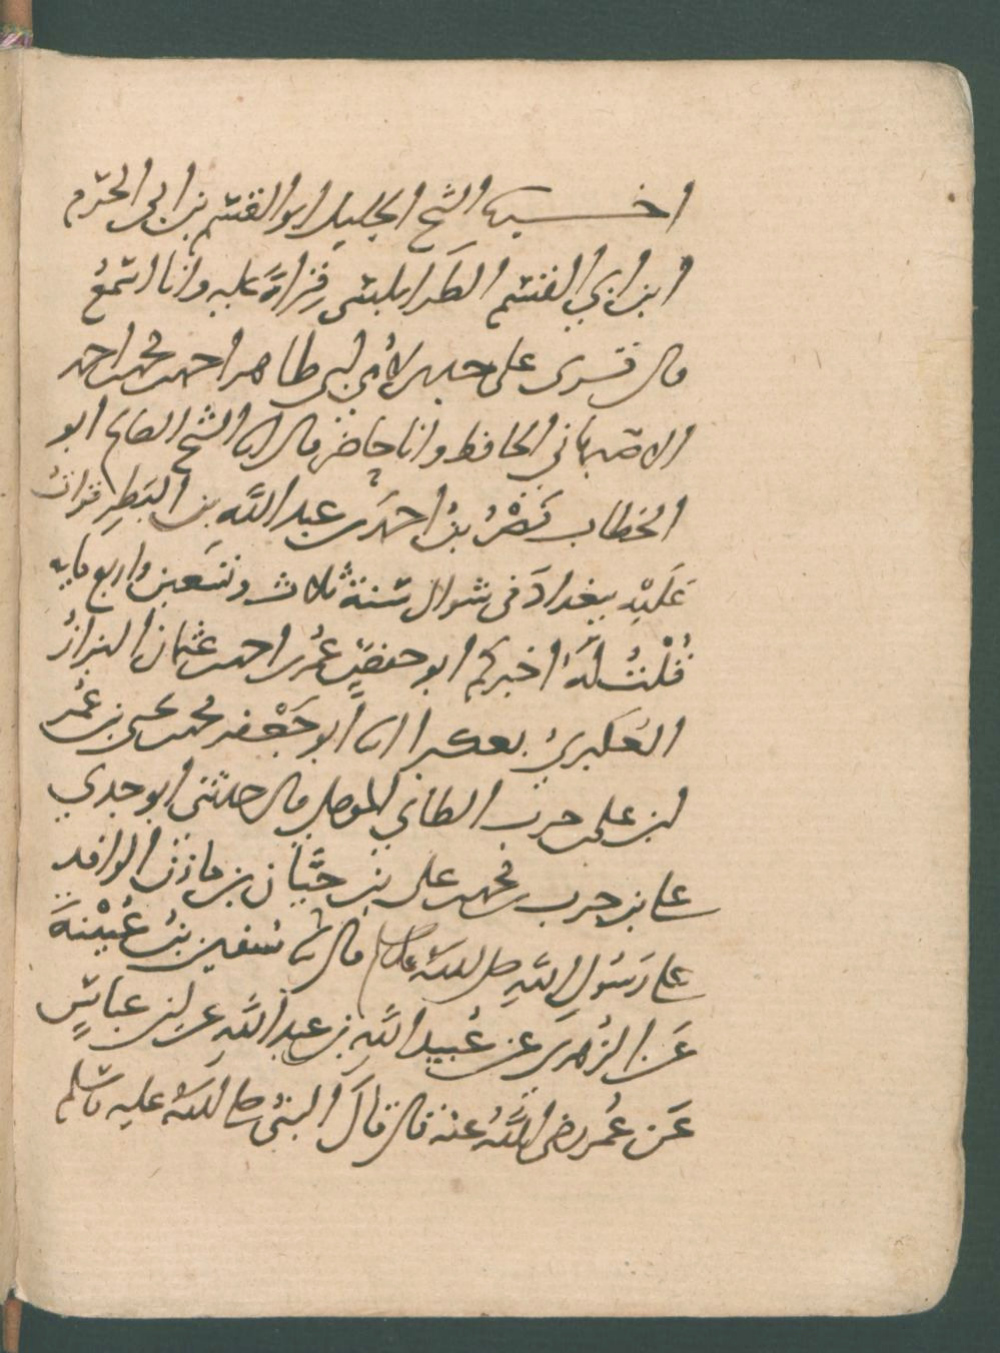 اخبرنا الشيخ الجليل ابو القسم بن ابى الحرم
ابن ابي القسم الطرابلسى قراةً عليه وانا اسمعُ
قال قرى على جدى لامي ابى طاهر احمد بن محمد بن احمد
الاصبهاني الحافظ وانا حاضر قال انا الشيخ الصالح ابو
الخطاب نَصْرُ بنُ احمدَ بن عبد اللهِ بن البَطِرِ قراتُ
عَلَيْهِ ببغدادَ فى شوال سنة ثلاث وتسعين واربع مايه
قُلْتُ لَهُ اخبركم ابو حفصٍ عُمر بن احمد بن عثمان البزازُ
العكبريُ بعكبرا انا ابو جَعْفر محمد بن يحيى بن عُمَر
ابن على بن حرب الطاي الموصلى قال حدثنى ابو جدي
على بن حرب بن محمد بن على بن حَيَّان بن مازن الوافد
على رَسُولِ اللهِ صلى الله عليه وسلم قال ثنا سفين بنُ عُيَيْنَةَ
عَن الزُهرى عن عُبيد اللهِ بن عبد اللهِ عن ابن عباسٍ
عَن عُمر رضى اللهُ عنه قال قالَ النبىُ صلى اللهُ عليه وسلم